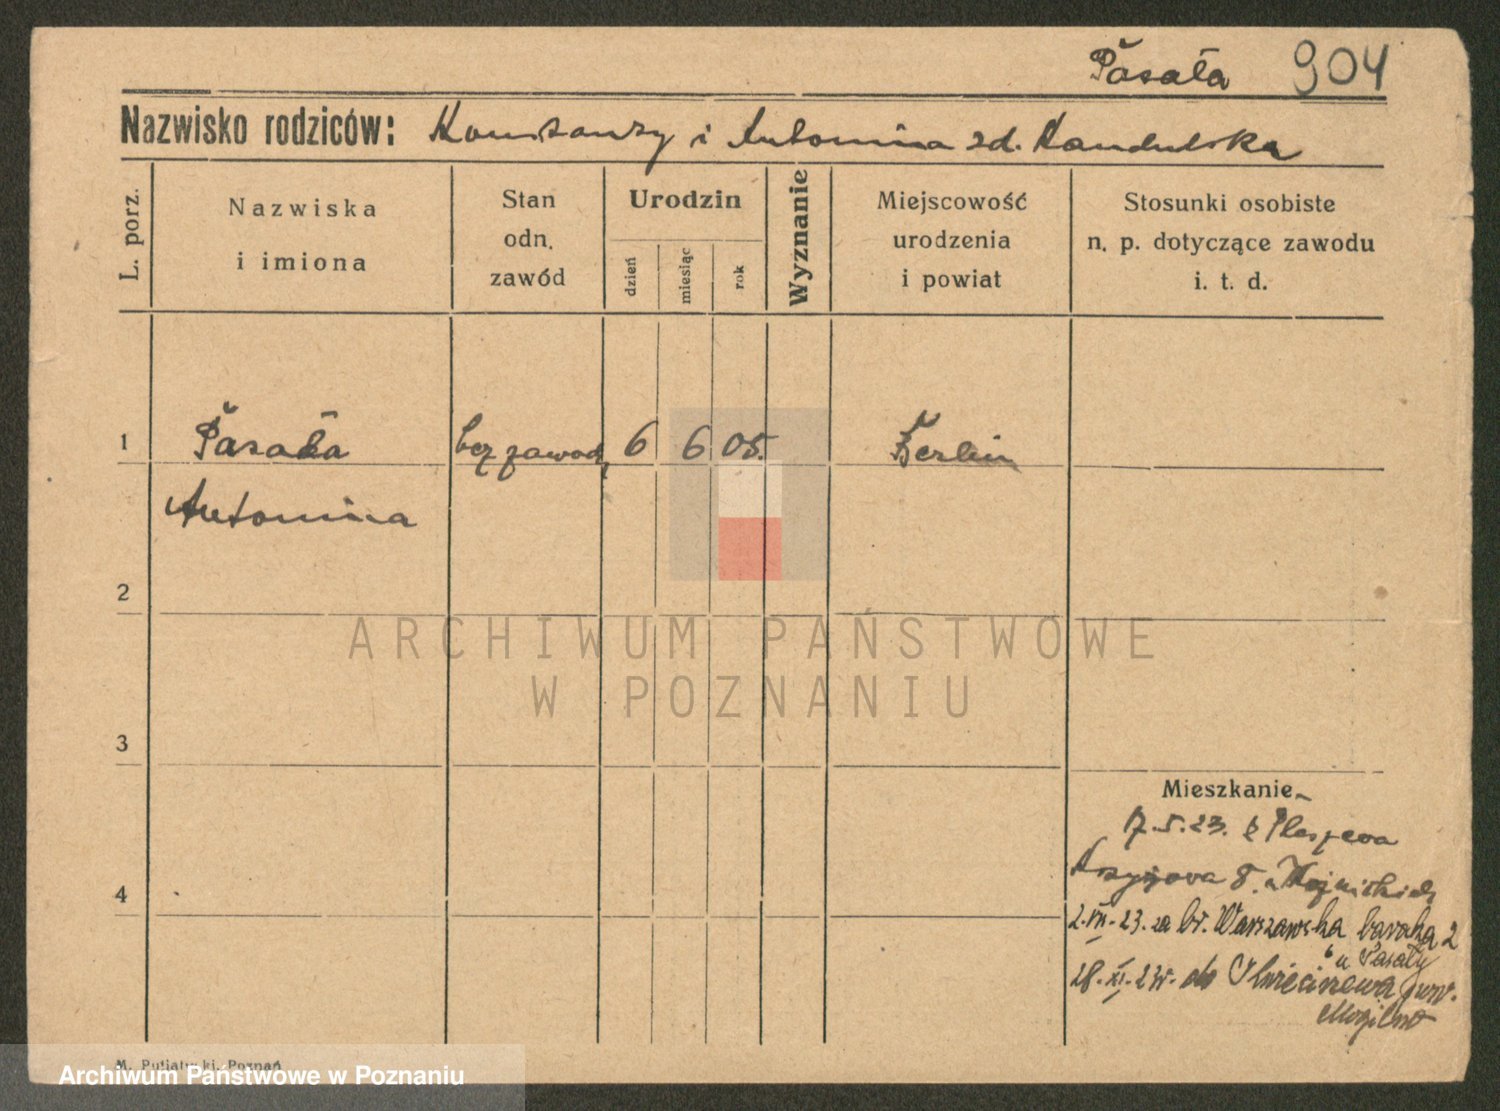 Pasała 904
Nazwisko rodziców: Konstanty i Antonina zd. Kandulska
L. porz.
Nazwiska
i imiona
Stan
odn.
zawód
Urodzin
dzień
miesiąc
rok
Wyznanie
Miejscowość
urodzenia
i powiat
Stosunki osobiste
n. p. dotyczące zawodu
i. t. d.
1 Pasała bez zawodu 6 6 05. Berlin
Antonina
2
ARCHIWUM PAŃSTWOWE
W POZNANIU
3
Mieszkanie
17.5.23. z Pleszewa
4
Krzyżowa 8. u
2.VII.23. za br. Warszawska baraka 2
u Pasały
28.XI.24. do pow.
Mogilno
M. Putiatycki, Poznań
Archiwum Państwowe w Poznaniu